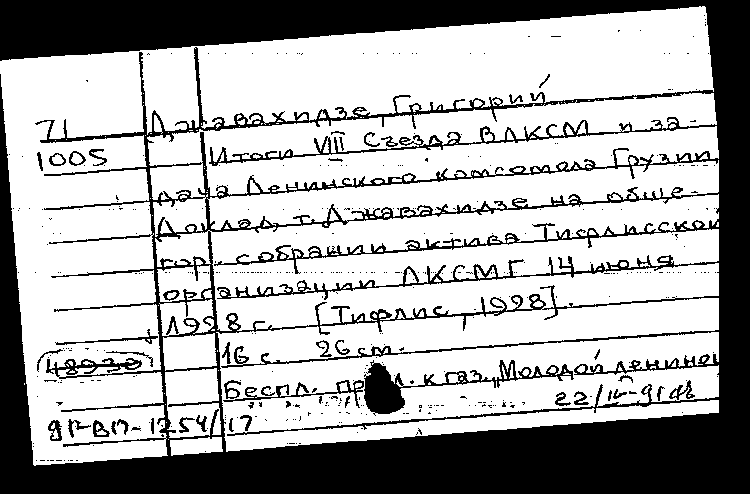 71 Джавахидзе, Григорий
1005 Итоги VIII Съезда ВЛКСМ и за-
дача Ленинского комсомола Грузии.
Доклад т. Джавахидзе на обще-
гор. собрании актива Тифлисской
организации ЛКСМГ 14 июня
1928 г. [Тифлис, 1928].
48930 16 с. 26 см.
Беспл. к газ. „Молодой ленинец
22/IV-91